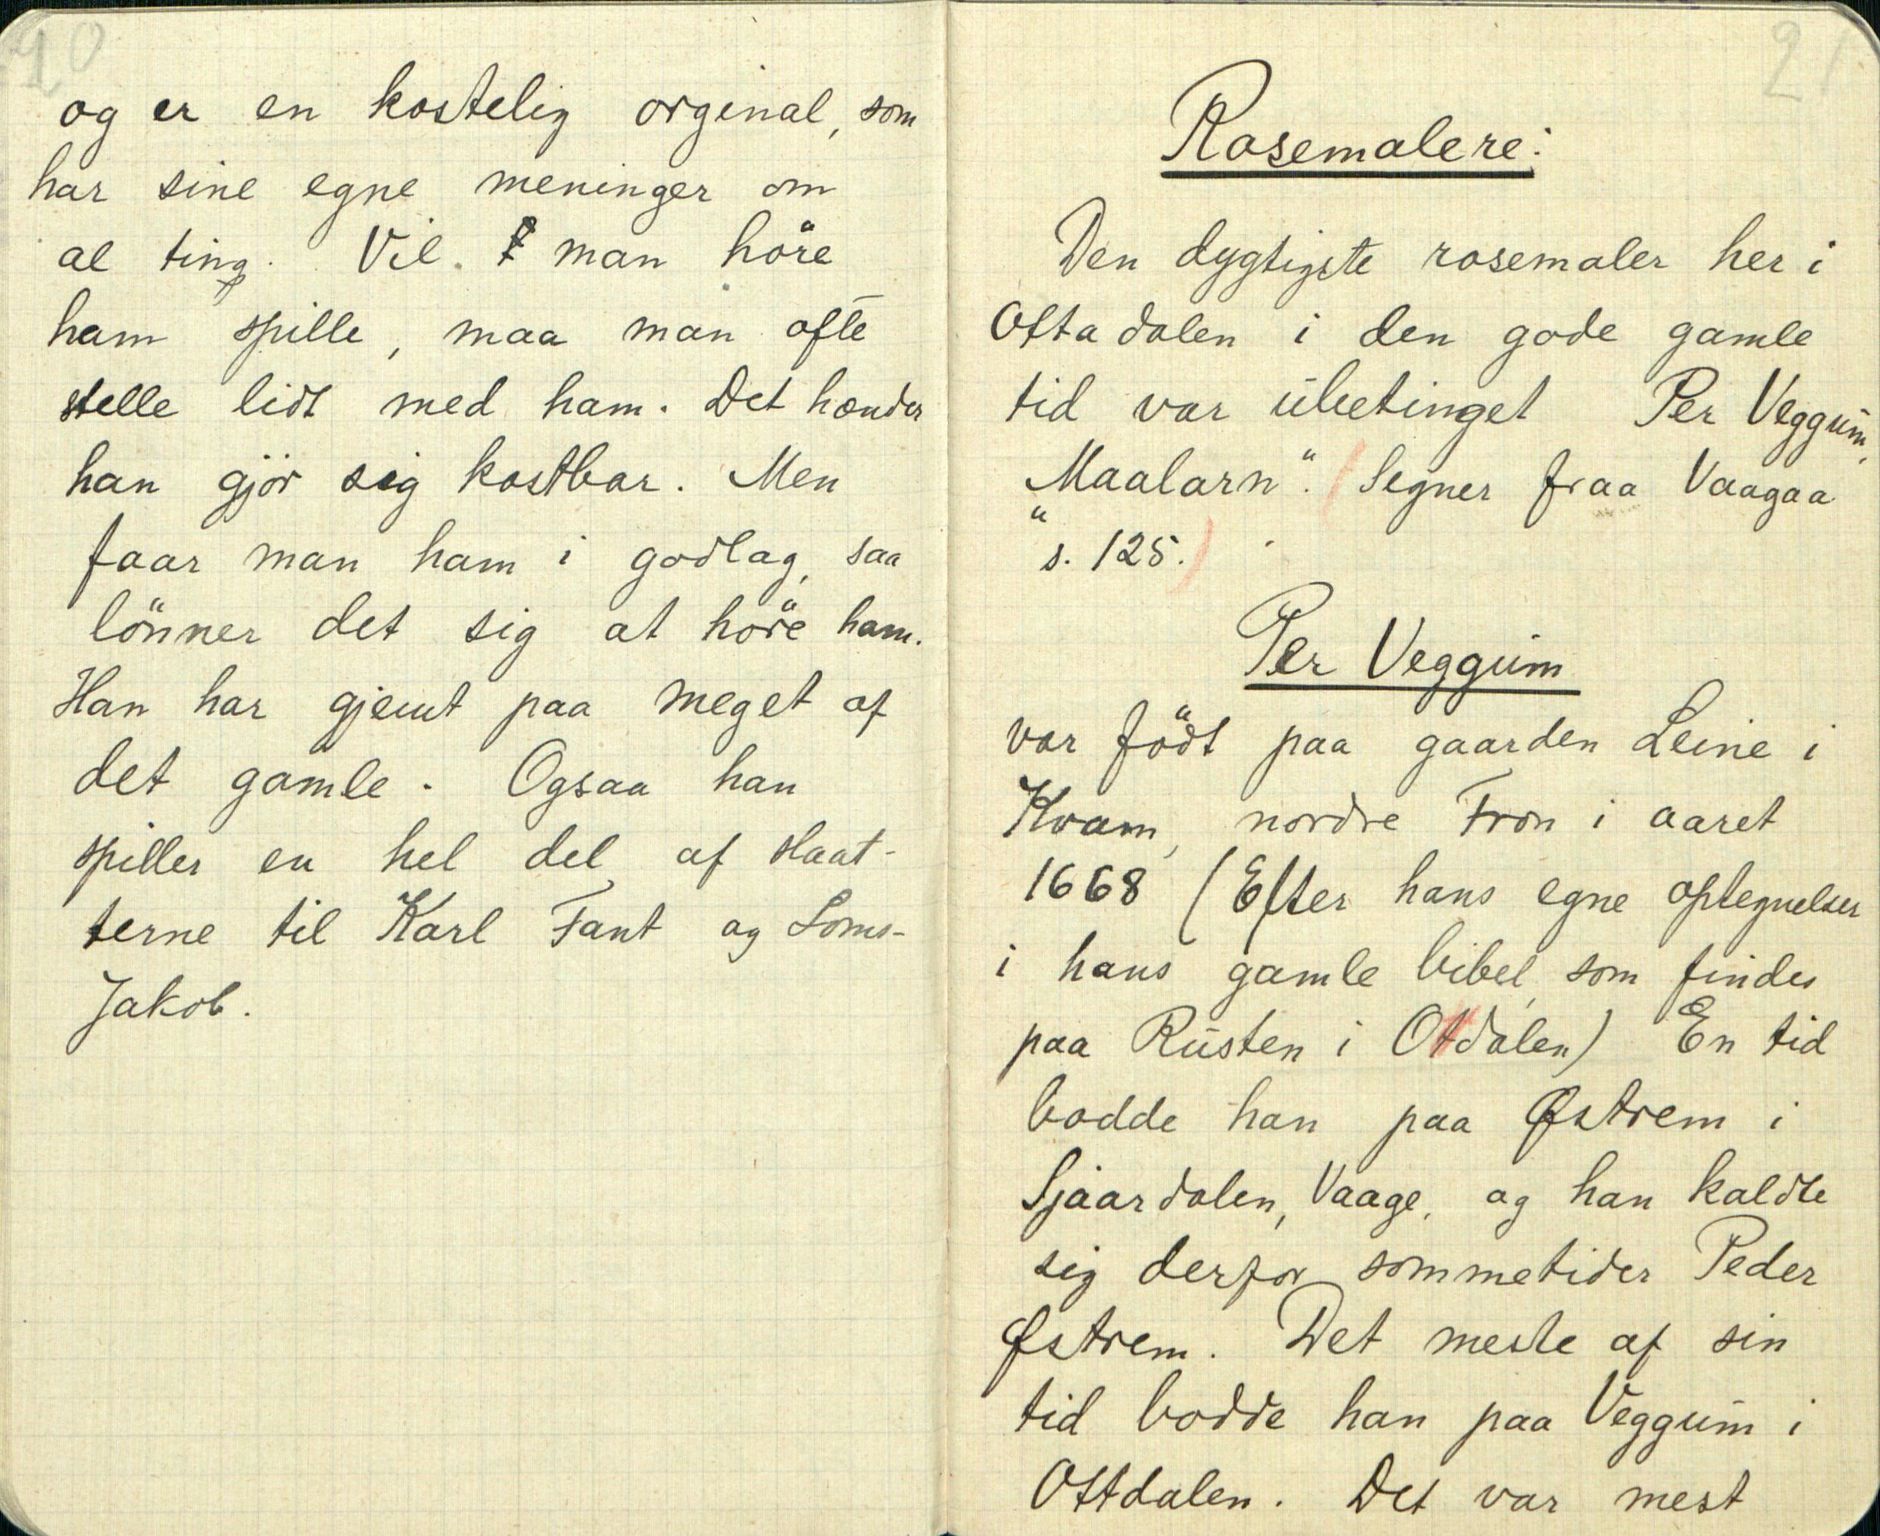 20
og er en kostelig orginal, som
har sine egne meninger om
al ting. Vil man höre
ham spille, maa man ofte
stelle lidt med ham. Det hænder
han gjör sig kostbar. Men
faar man ham i godlag, saa
lönner det sig at höre ham.
Han har gjemt paa meget af
det gamle. Ogsaa han
spiller en hel del af slaat-
terne til Karl Fant og Loms-
Jakob.
21
Rosemalere:
Den dygtigste rosemaler her i
Ottadalen i den gode gamle
tid var ubetinget Per Veggum,
„Maalarn“. (Segner fraa Vaagaa
s. 125.)
Per Veggum
var födt paa gaarden Leine i
Kvam, nordre Fron i aaret
1668 (Efter hans egne optegnelser
i hans gamle bibel, som findes
paa Rusten i Ottdalen) En tid
bodde han paa Østrem i
Sjaardalen, Vaage, og han kaldte
sig derfor sommetider Peder
Østrem. Det meste af sin
tid bodde han paa Veggum i
Ottdalen. Det var mest